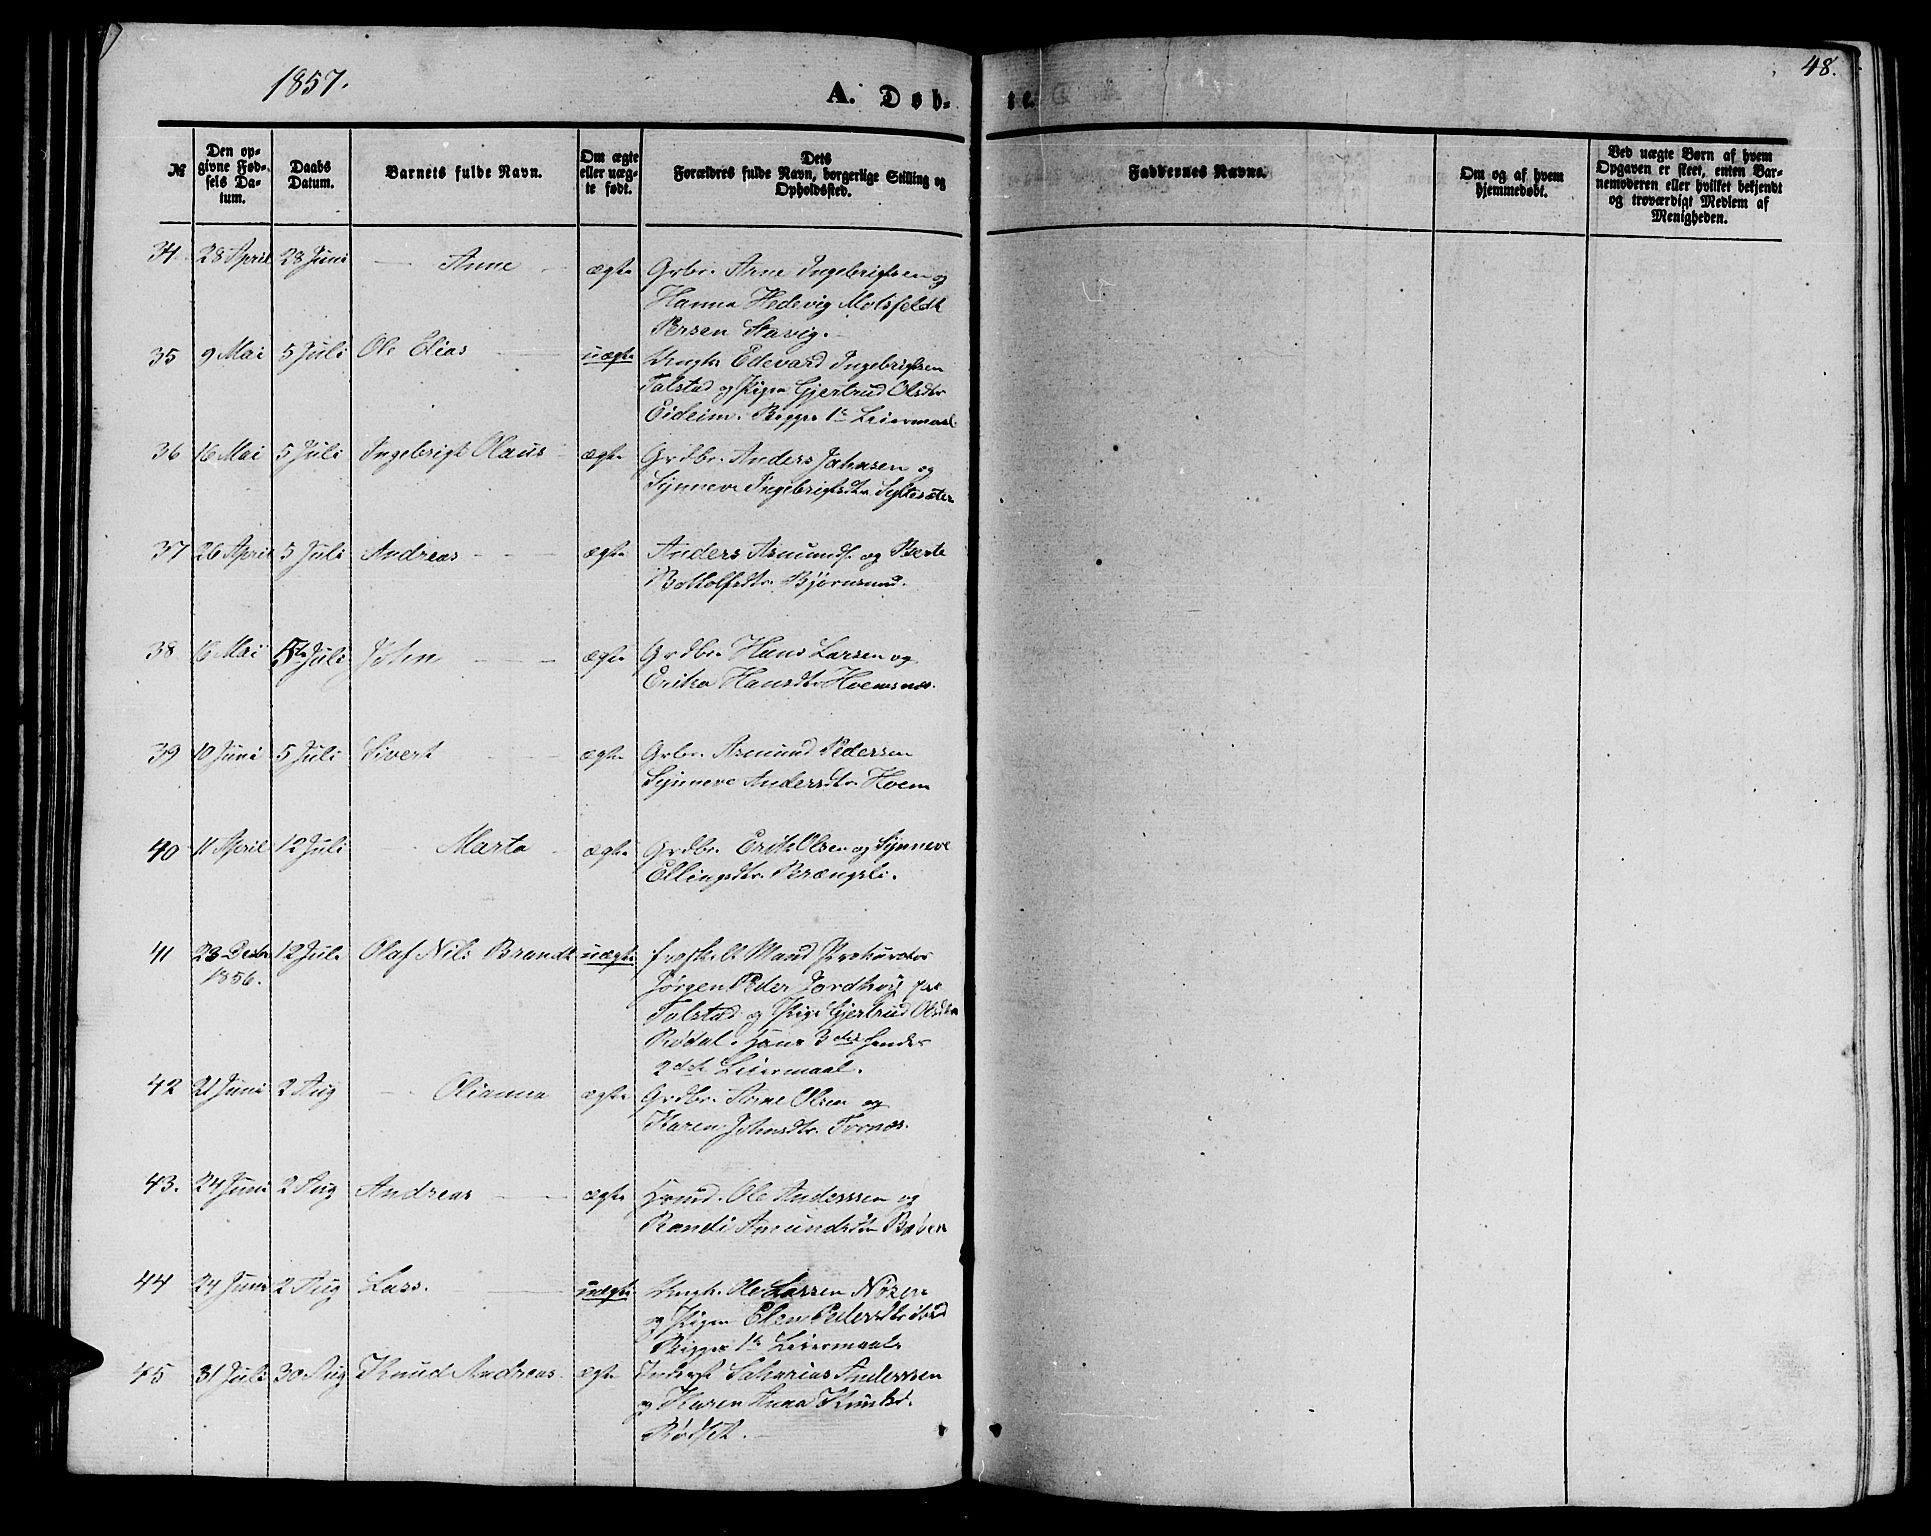 1857.
A. Døb-
te.
48.
№
Den op-
givne Fød-
sels Da-
tum.
Daabs
Datum.
Barnets fulde Navn.
Om ægte
eller uæg-
te født.
Dets
Forældres fulde Navn, borgerlige Stilling og
Opholdssted.
Faddernes Navne.
Om og af hvem
hjemmedøbt.
Ved uægte Børn af hvem
Opgaven er skeet, enten Bar-
nemoderen eller hvilket bekjendt
og troværdigt Medlem af
Menigheden.
34. 28 April 28 Juni Anne ægte Grbr. Arne Ingebrigtsen og
Hanna Hedevig Motsfeldt
Persen Stavig.
35 9 Mai 5 Juli Ole Elias uægte Ungk. Edevard Ingebrigtsen
Talstad og Pigen Gjertrud Olsdtr
Eideim. Begges 1te Leiermaal
36 16 Mai 5 Juli Ingebrigt Olaus ægte Grdbr. Anders Johnsen og
Synneve Ingebrigtsdtr Sylteseter
37 26 April 5 Juli Andreas ægte Anders Asmunds. og Berte
Bottolfsdtr. Bjørnsund.
38 16 Mai 5te Juli John ægte Grdbr. Hans Larsen og
Erika Hansdtr Hoemsnes.
39 10 Juni 5 Juli Sivert ægte Grbr. Asmund Pedersen
Synneve Andersdtr. Hoem
40 11 April 12 Juli Marta ægte Grdbr. Erik Olsen og Synneve
Ellingsdtr. Brængsli.
41 23 Decbr 12 Juli Olaf Nils Brandt uægte fraskilt Mand Prokurator
1856.
Jørgen Peder Jordhøy paa
Talstad og Pige Gjertrud Olsdtr
Rødal. Hans 3die hendes
2det Leiermaal.
42 21 Juni 2 Aug Olianna ægte Grdbr. Arne Olsen og
Karen Johnsdtr. Tornes.
43. 24 Juni 2 Aug Andreas ægte Hmd. Ole Anderssen og
Randi Amundsdtr
44 24 Juni 2 Aug Lars. uægte Ungk. Ole Larsen
og Pigen Elen Pedersdtr
Begges 1te Leiermaal
45 31 Juli 30 Aug Knud Andreas. ægte Inderst Sakarias Anderssen
og Karen Anna Knutsd.
Rødset.